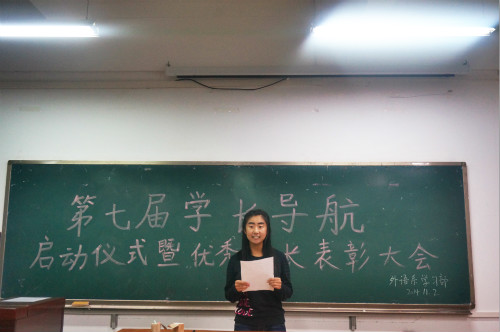 第七届学长导航
启动仪式暨优秀 长表彰大会
外语系学习部